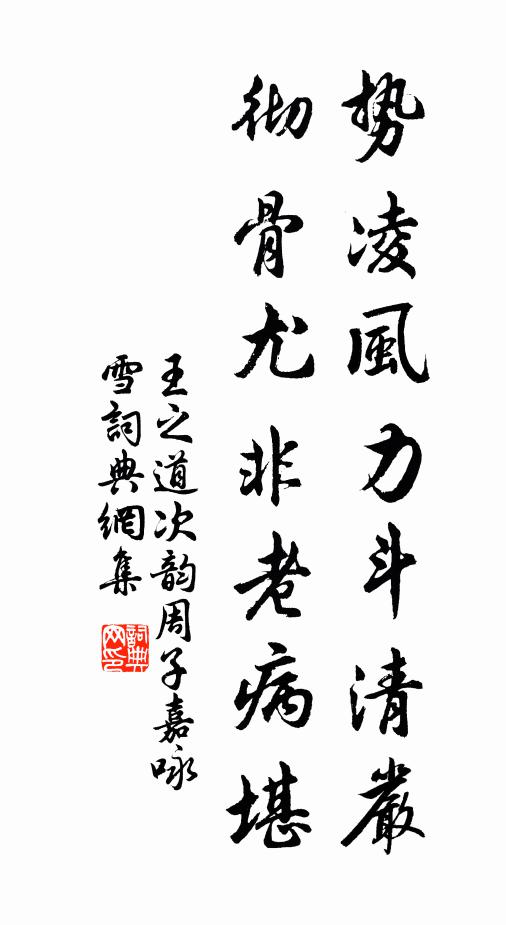 势凌風力斗清嚴
彻骨尤非老病堪
王之道次韵周子嘉咏
雪詞典網集
詞典网印